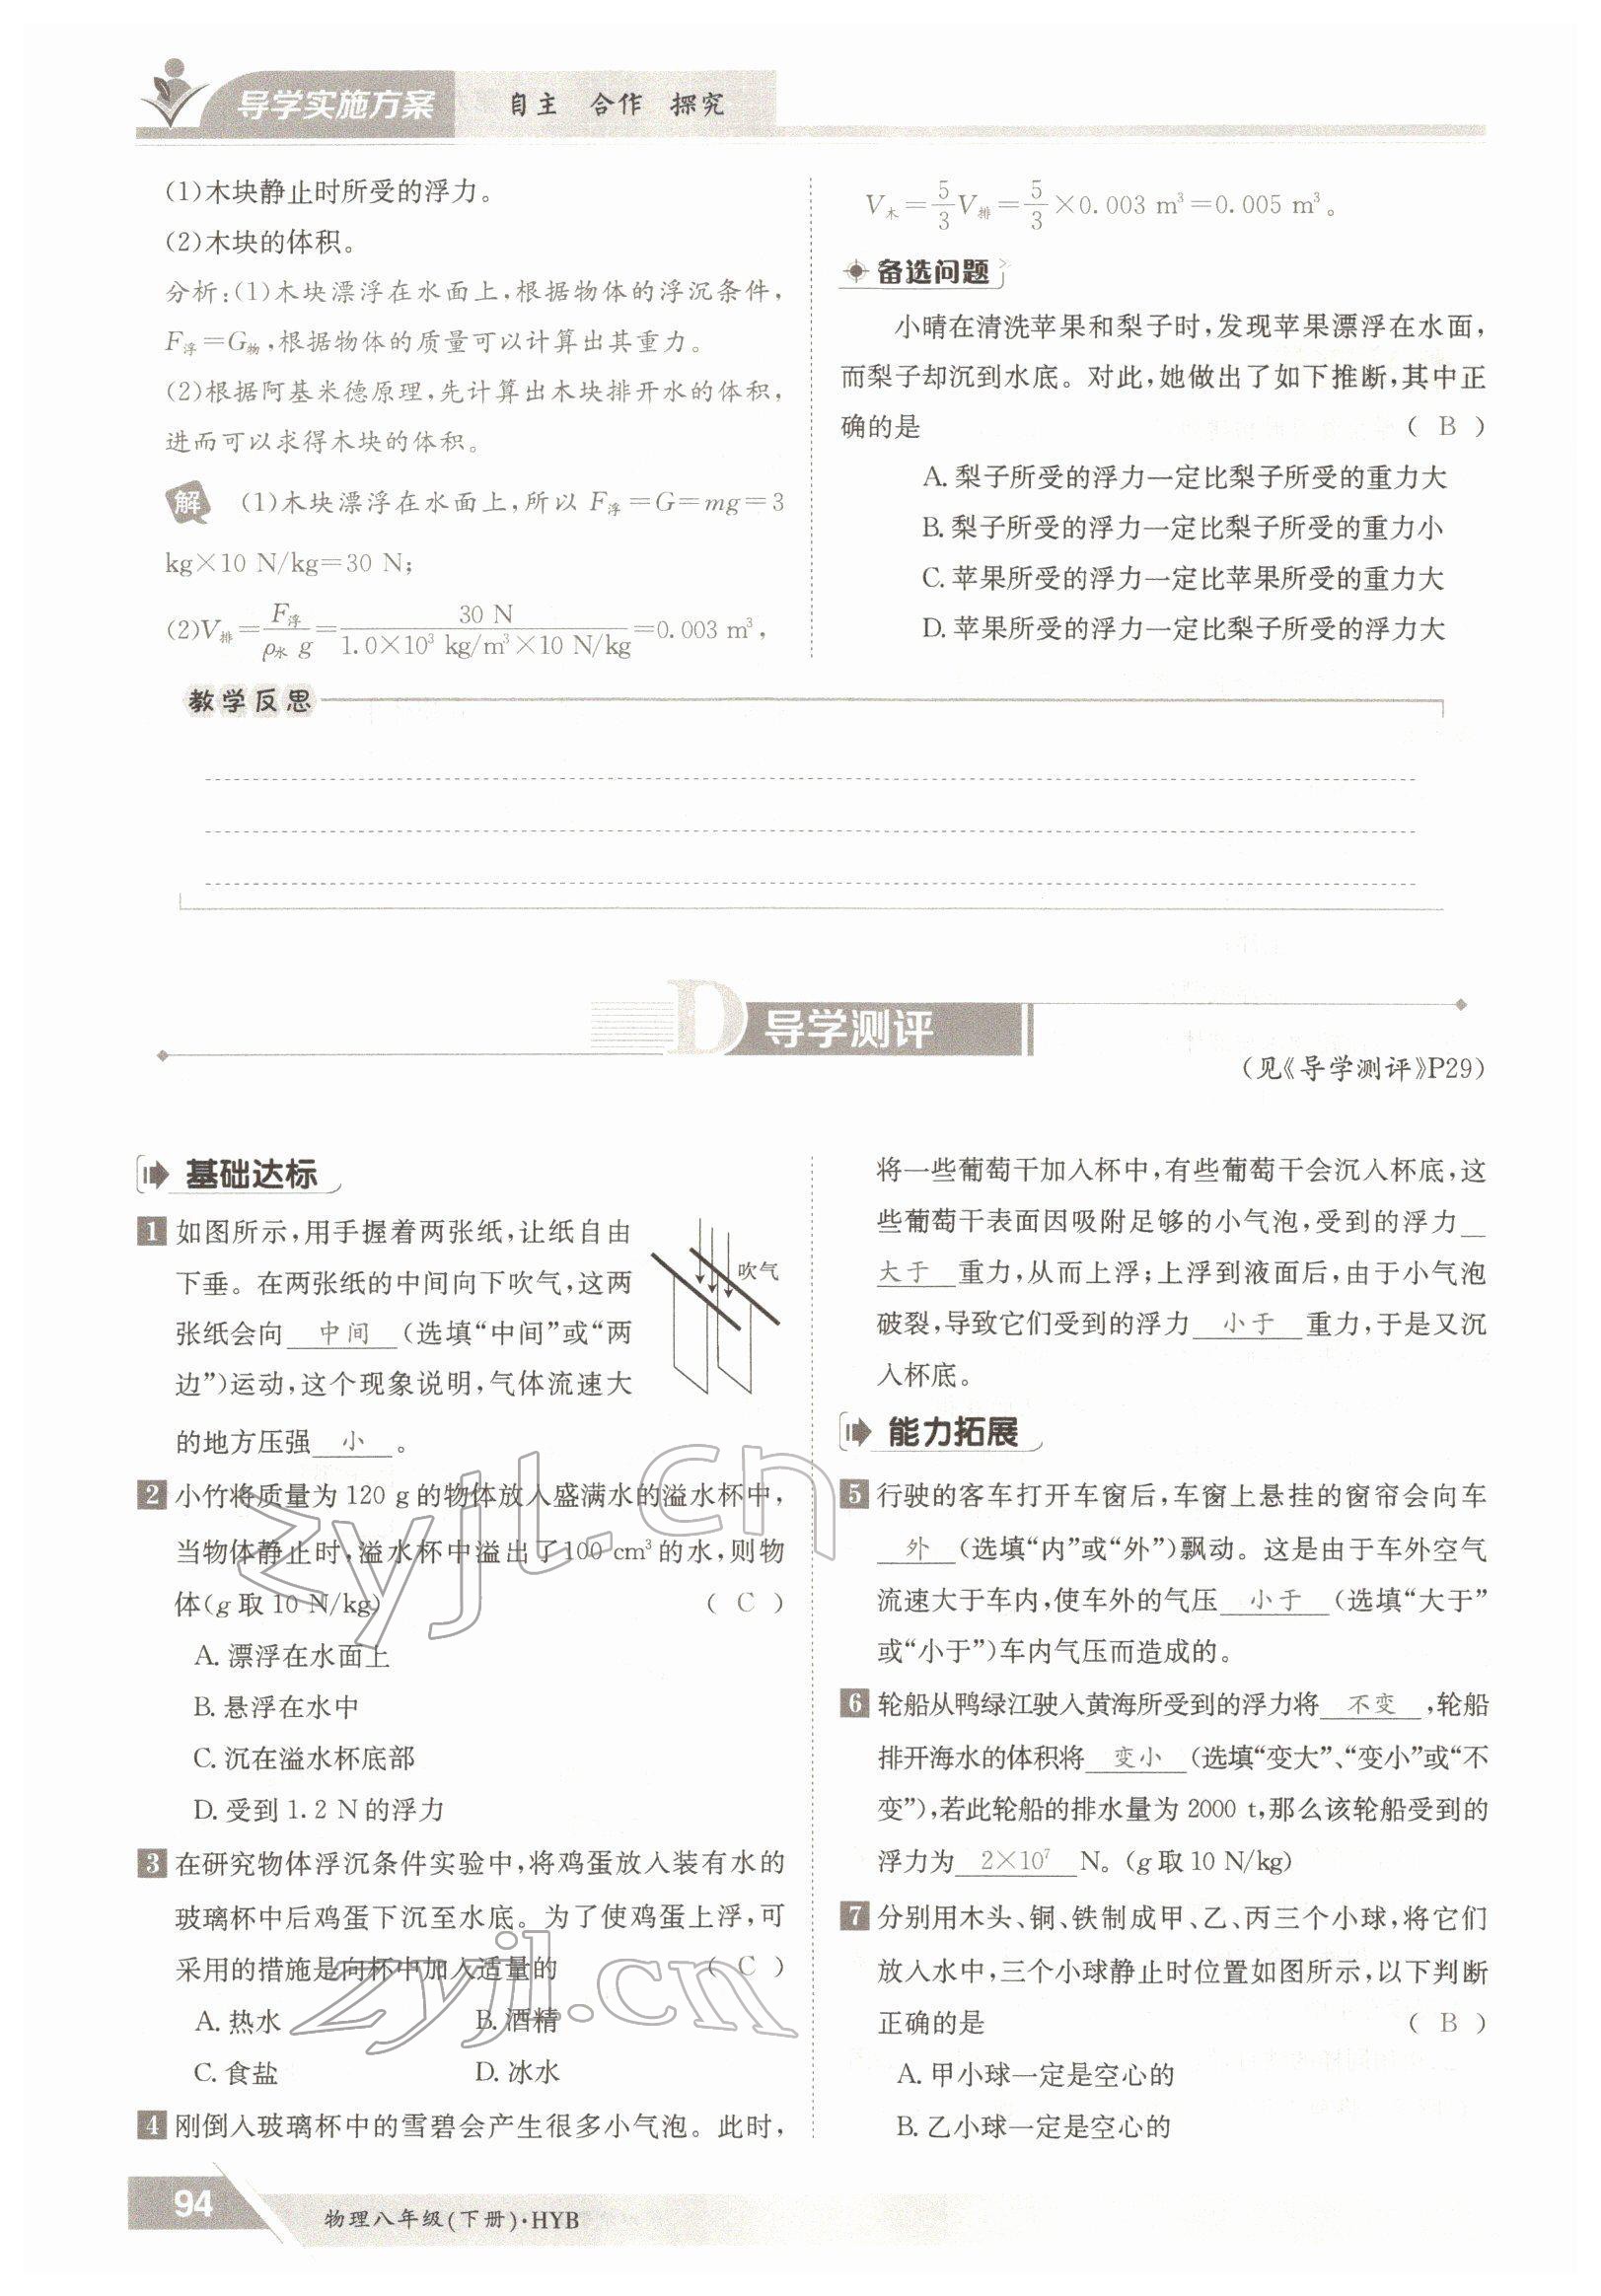 导学实施方案 自主 合作 探究
(1)木块静止时所受的浮力。
(2)木块的体积。
分析:(1)木块漂浮在水面上,根据物体的浮沉条件,
F浮=G物,根据物体的质量可以计算出其重力。
(2)根据阿基米德原理,先计算出木块排开水的体积,
进而可以求得木块的体积。
解 (1)木块漂浮在水面上,所以 F浮=G=mg=3
kg×10 N/kg=30 N;
(2)V排=F浮/ρ水 g=30 N/1.0×10³ kg/m³×10 N/kg=0.003 m³,
V木=5/3V排=5/3×0.003 m³=0.005 m³。
备选问题
小晴在清洗苹果和梨子时,发现苹果漂浮在水面,
而梨子却沉到水底。对此,她做出了如下推断,其中正
确的是 ( B )
A. 梨子所受的浮力一定比梨子所受的重力大
B. 梨子所受的浮力一定比梨子所受的重力小
C. 苹果所受的浮力一定比苹果所受的重力大
D. 苹果所受的浮力一定比梨子所受的浮力大
教学反思
D 导学测评
(见《导学测评》P29)
基础达标
1 如图所示,用手握着两张纸,让纸自由
下垂。在两张纸的中间向下吹气,这两
张纸会向 中间 (选填“中间”或“两
边”)运动,这个现象说明,气体流速大
的地方压强 小 。
吹气
2 小竹将质量为 120 g 的物体放入盛满水的溢水杯中,
当物体静止时,溢水杯中溢出了100 cm³ 的水,则物
体(g 取 10 N/kg) ( C )
A. 漂浮在水面上
B. 悬浮在水中
C. 沉在溢水杯底部
D. 受到 1.2 N 的浮力
3 在研究物体浮沉条件实验中,将鸡蛋放入装有水的
玻璃杯中后鸡蛋下沉至水底。为了使鸡蛋上浮,可
采用的措施是向杯中加入适量的 ( C )
A. 热水 B. 酒精
C. 食盐 D. 冰水
4 刚倒入玻璃杯中的雪碧会产生很多小气泡。此时,
将一些葡萄干加入杯中,有些葡萄干会沉入杯底,这
些葡萄干表面因吸附足够的小气泡,受到的浮力
大于 重力,从而上浮;上浮到液面后,由于小气泡
破裂,导致它们受到的浮力 小于 重力,于是又沉
入杯底。
能力拓展
5 行驶的客车打开车窗后,车窗上悬挂的窗帘会向车
外 (选填“内”或“外”)飘动。这是由于车外空气
流速大于车内,使车外的气压 小于 (选填“大于”
或“小于”)车内气压而造成的。
6 轮船从鸭绿江驶入黄海所受到的浮力将 不变 ,轮船
排开海水的体积将 变小 (选填“变大”、“变小”或“不
变”),若此轮船的排水量为 2000 t,那么该轮船受到的
浮力为 2×10⁷ N。(g 取 10 N/kg)
7 分别用木头、铜、铁制成甲、乙、丙三个小球,将它们
放入水中,三个小球静止时位置如图所示,以下判断
正确的是 ( B )
A. 甲小球一定是空心的
B. 乙小球一定是空心的
zyjl.cn
zyjl.cn
94 物理八年级(下册)·HYB